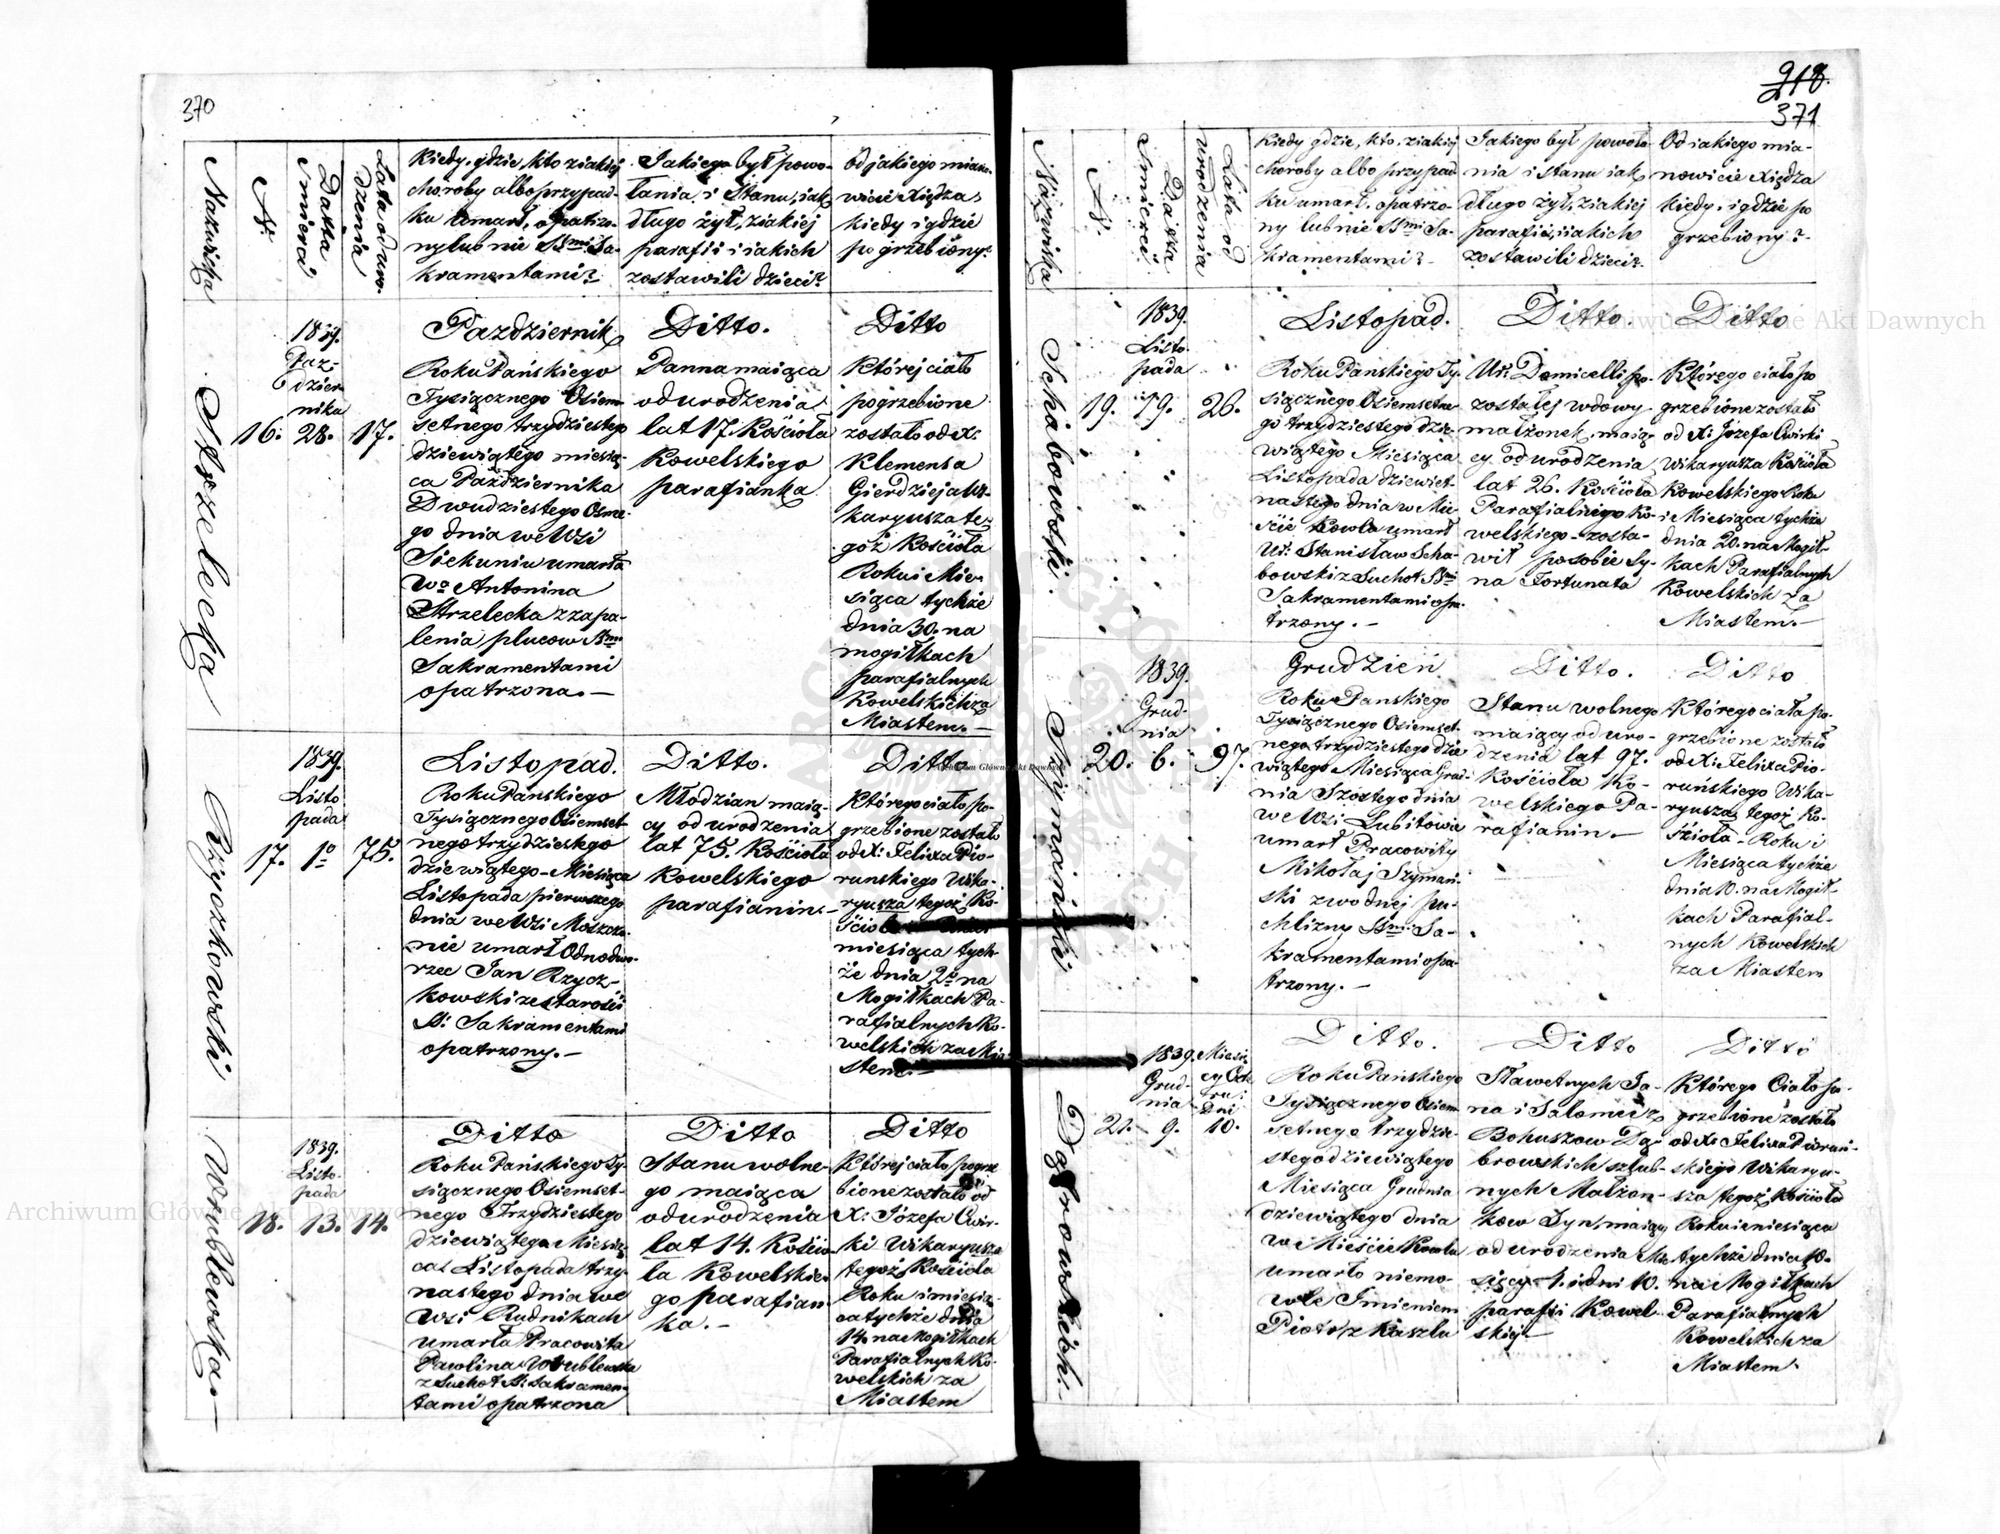 370
Nazwiska
N.
Datta
śmierci
Lata od uro-
dzenia
Kiedy, gdzie, kto z iakiej
choroby albo przypad-
ku umarł, opatrzo-
ny lub nie SSmi Sa-
kramentami?
Jakiego był powo-
łania i Stanu, iak
długo żył, z iakiej
parafii i iakich
zostawili dzieci?
od jakiego miano-
wicie Xiędza,
kiedy i gdzie
pogrzebiony?
Strzelecka
1839.
Paz-
dzier
nika
16. 28. 17.
Pazdziernik
Roku Pańskiego
Tysiącznego Osiem
setnego trzydziestego
dziewiątego miesią-
ca Października
Dwudziestego Osme-
go dnia we Wsi
Siekuniu umarła
Wa Antonina
Strzelecka z zapa-
lenia plucow SSmi
Sakramentami
opatrzona. —
Ditto.
Panna maiąca
od urodzenia
lat 17. Kościoła
Kowelskiego
parafianka
Ditto
Której ciało
pogrzebione
zostało od X.
Klemensa
Gierdzieja Wi-
karyusza te-
goż Kościoła
Roku i Mie-
siąca tychże
dnia 30. na
mogiłkach
parafialnych
Kowelskich za
Miastem. —
Rzyczkowski
1839.
Listo
pada
17. 1o 75.
Listopad.
Roku Pańskiego
Tysiącznego Osiemset-
nego trzydziestego
dziewiątego Miesiąca
Listopada pierwszego
dnia we Wsi Moszczo-
nie umarł Odnodwo-
rzec Jan Rzycz-
kowski ze starości
S. Sakramentami
opatrzony. —
Ditto.
Młodzian maią-
cy od urodzenia
lat 75. Kościoła
Kowelskiego
parafianin. —
Ditto
Którego ciało po-
grzebione zostało
od X: Felixa Pio-
runskiego Wika-
ryusza tegoż Ko-
ścioła
miesiąca tych-
że dnia 2o na
Mogiłkach Pa-
rafialnych Ko-
welskich za Mia-
stem. —
Wrublewska. —
1839.
Listo-
pada
18. 13. 14.
Ditto
Roku Pańskiego Ty-
siącznego Osiemset-
nego Trzydziestego
dziewiątego Miesią-
ca Listopada trzy-
nastego dnia we
Wsi Rudnikach
umarła Pracowita
Pawlina Wrublewska
z Suchot S. Sakramen-
tami opatrzona
Ditto
Stanu wolne-
go maiąca
od urodzenia
lat 14. Kościo-
ła Kowelskie-
go parafian-
ka. —
Ditto
Której ciało pogrze-
bione zostało od
X: Józefa Cwir-
ki Wikaryusza
tegoż Kościoła
Roku i miesią-
ca tychże dnia
14. na Mogiłkach
Parafialnych Ko-
welskich za
Miastem
218.
371
Nazwiska
N.
Datta
śmierci
Lata od
urodzenia
Kiedy gdzie, kto, z iakiej
choroby albo przypad
ku umarł, opatrzo-
ny lub nie SSmi Sa-
kramentami? -
Jakiego był powoła-
nia i stanu iak
długo żył, z iakiej
parafii, i iakich
zostawili dzieci?
Od iakiego mia-
nowicie Xiędza
kiedy, i gdzie po
grzebiony? -
Schabowski
1839.
Listo-
pada
19. 19. 26.
Listopad.
Roku Pańskiego Ty-
siącznego Osiemsetne
go trzydziestego dzie-
wiątego Miesiąca
Listopada dziewiet-
nastego dnia w Mie-
ście Kowlu umarł
Ur: Stanisław Scha-
bowski z Suchot SSmi
Sakramentami opa-
trzony. —
Ditto.
Ur: Domicelli po-
zostałej wdowy
małżonek, maią-
cy od urodzenia
lat 26. Kościoła
Parafialnego Ko-
welskiego - zosta-
wił po sobie Sy-
na Fortunata
Ditto
Którego ciało po
grzebione zostało
od X: Józefa Cwirki
Wikaryusza Kościoła
Kowelskiego Roku
i Miesiąca tychże
dnia 20. na Mogił-
kach Parafialnych
Kowelskich za
Miastem. —
Szymański
1839.
Grud-
nia
20. 6. 97.
Grudzień
Roku Pańskiego
Tysiącznego Osiemset-
nego trzydziestego dzie
wiątego Miesiąca Grud-
nia Szostego dnia
we Wsi Lubitowie
umarł Pracowity
Mikołaj Szymań-
ski z wodnej pu-
chlizny SSmi Sa-
kramentami opa-
trzony. —
Ditto.
Stanu wolnego
maiący od uro-
dzenia lat 97.
Kościoła Ko-
welskiego Pa-
rafianin. —
Ditto
Którego ciało po-
grzebione zostało
od X: Felixa Pio-
ruńskiego Wika-
ryusza tegoż Ko-
ścioła - Roku i
Miesiąca tychże
dnia 10. na Mogił-
kach Parafial-
nych Kowelskich
za Miastem
Dąbrowskich.
1839.
Grud-
nia
Miesią-
cy
Dni
21. 9. 10.
Ditto.
Roku Pańskiego
Tysiącznego Osiem
setnego trzydzie-
stego dziewiątego
Miesiąca Grudnia
dziewiątego dnia
w Mieście Kowlu
umarło niemo-
wle Imieniem
Piotr z Kaszlu
Ditto
Sławetnych Ja-
na i Salomei z
Bohuszow Dą-
browskich szlub-
nych Małżon-
kow Syn, maiący
od urodzenia Mie-
sięcy 1. i dni 10.
parafii Kowel-
skiej —
Ditto
Którego Ciało po-
grzebione zostało
od X. Felixa Pioruń-
skiego Wikaryu-
sza tegoż Kościoła
Roku i miesiąca
tychże dnia 10.
na Mogiłkach
Parafialnych
Kowelskich za
Miastem.
Archiwum Główne Akt Dawnych
Archiwum Główne Akt Dawnych
Archiwum Główne Akt Dawnych